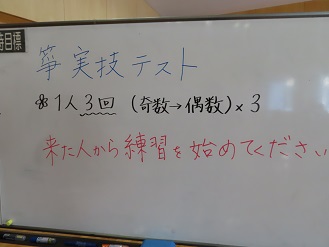 時目標
箏 実技テスト
※1人3回 (奇数→偶数)×3
来た人から練習を始めてください